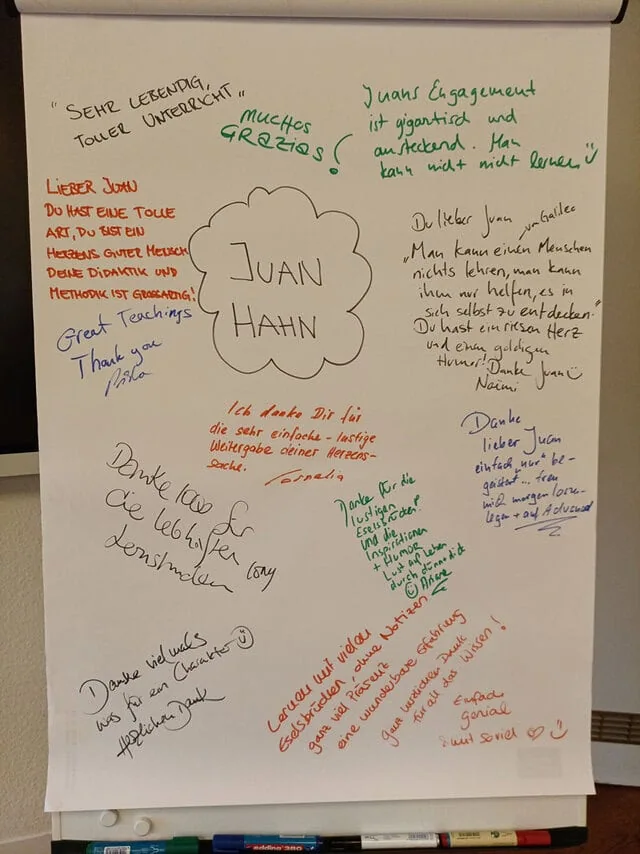 "SEHR LEBENDIG,
TOLLER UNTERRICHT"
MUCHOS
GRAZIAS!
Juans Engagement
ist gigantisch und
ansteckend. Man
kann nicht nicht lernen
LIEBER JUAN
DU HAST EINE TOLLE
ART, DU BIST EIN
HERZENS GUTER MENSCH
DEINE DIDAKTIK UND
METHODIK IST GROSSARTIG!
JUAN
HAHN
Du lieber Juan
von Galileo
"Man kann einen Menschen
nichts lehren, man kann
ihm nur helfen, es in
sich selbst zu entdecken."
Du hast ein riesen Herz
und einen goldigen
Humor! Danke Juan
Naimi
Great Teachings
Thank you
Ich danke Dir für
die sehr einfache-lustige
Weitergabe deiner Herzens-
sache. Cornelia
Danke
lieber Juan
einfach "nur" be-
geistert... freu
mich morgen loszu-
legen + auf Advanced
Danke 1000 für
die lebhaften
Lernstunden
Danke für die
lustigen
Eselsbrücken!
und die
Inspirationen
+ HUMOR
Lust auf Leben
durch dünn & dick
Ariane
Danke vielmals
was für ein Charakter
Herzlichen Dank
Lernen mit vielen
Eselsbrücken, ohne Notizen
ganz viel Präsenz
eine wunderbare Erfahrung
ganz herzlichen Dank
für all das Wissen!
Einfach
genial
& mit so viel
edding 380